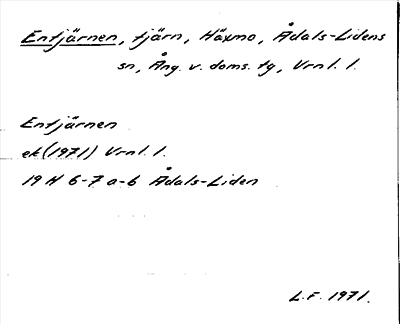 Entjärnen, tjärn, Häxmo, Ådals-Lidens
sn, Ång. v. doms. tg, Vrnl. l.
Entjärnen
ek (1971) Vrnl. l.
19 H 6-7 a-b Ådals-Liden
L.F. 1971.